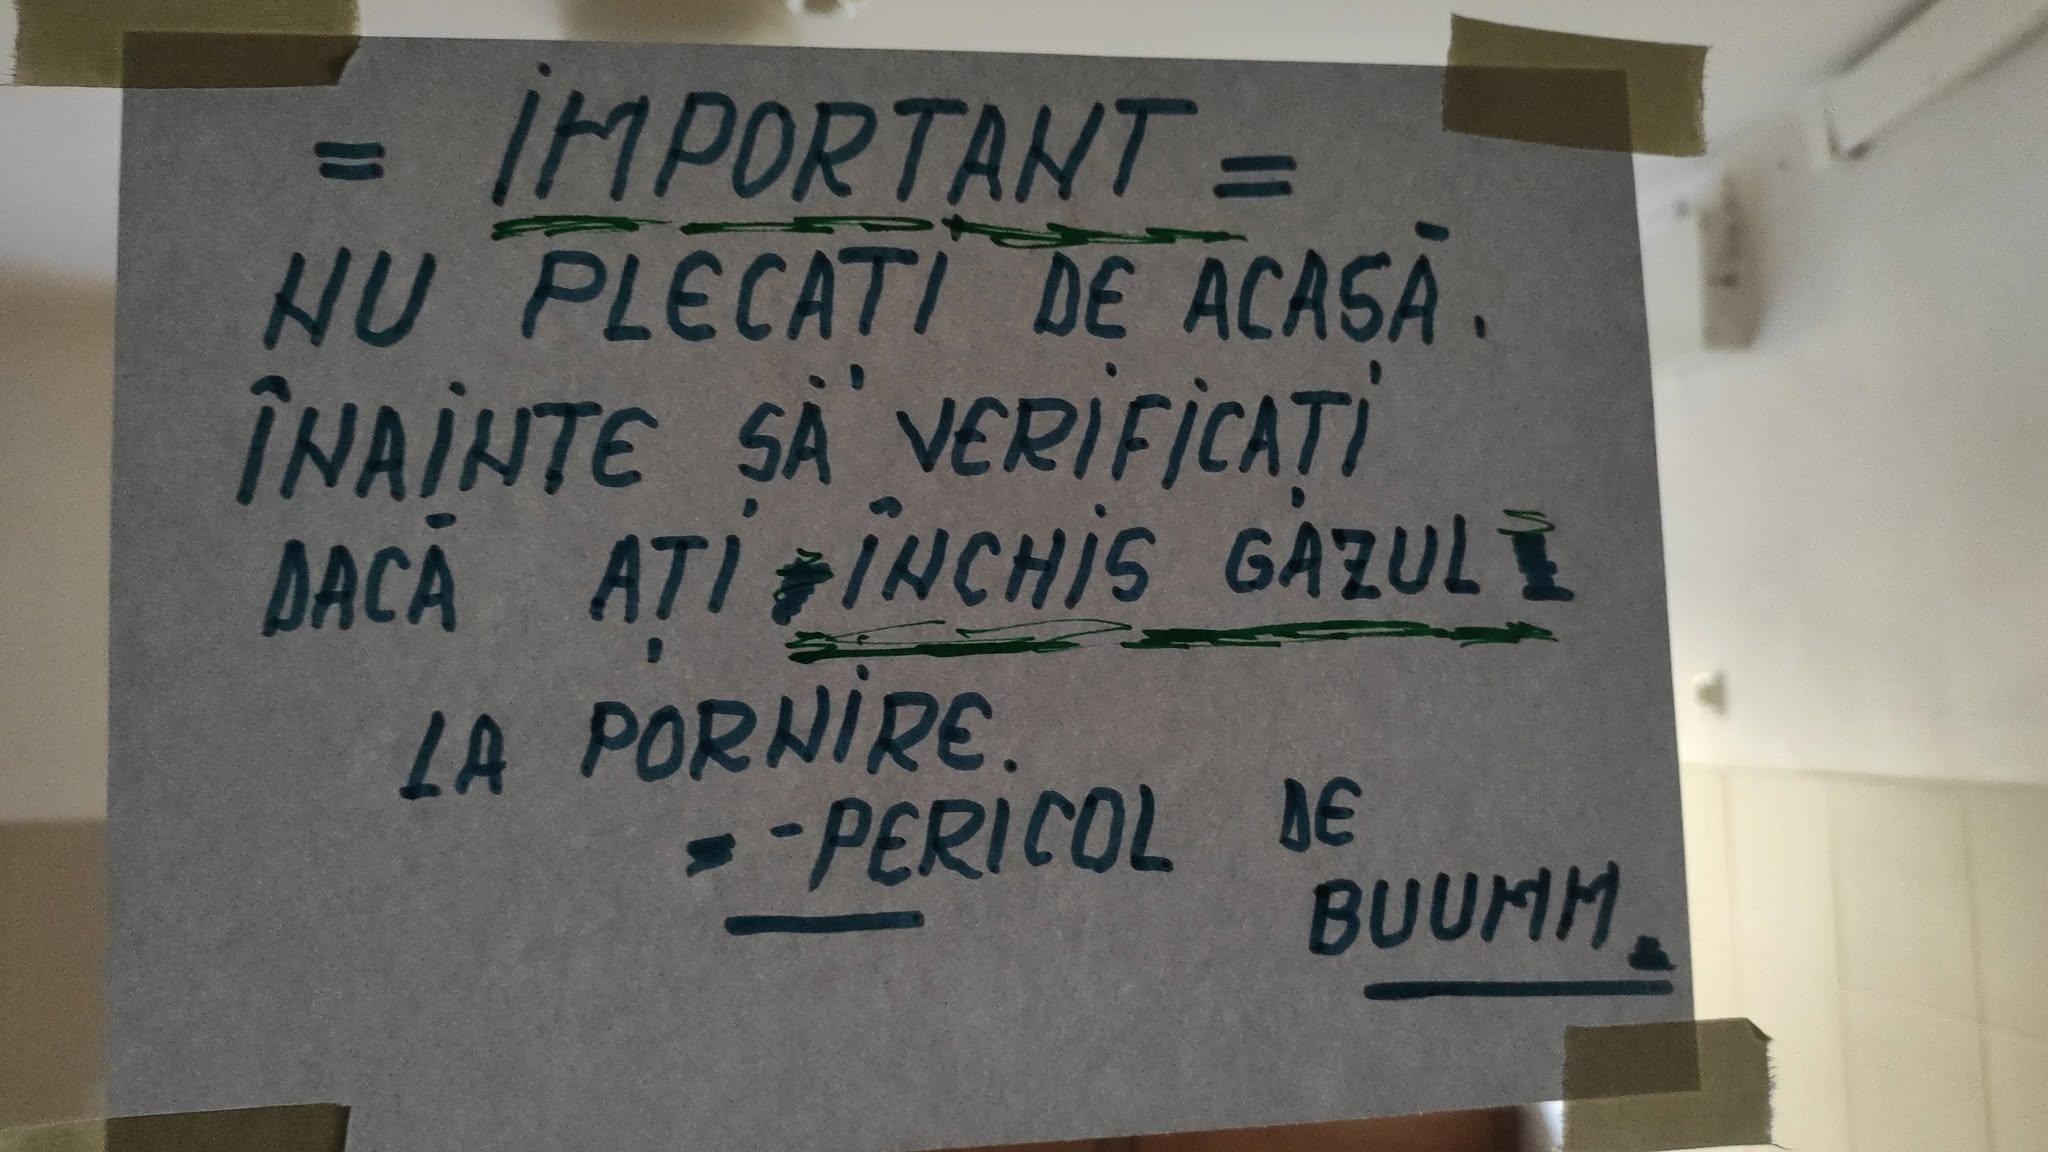 = IMPORTANT =
NU PLECATI DE ACASĂ.
ÎNAINTE SĂ VERIFICAȚI
DACĂ AȚI ÎNCHIS GAZUL
LA PORNIRE.
= -PERICOL DE
BUUMM.